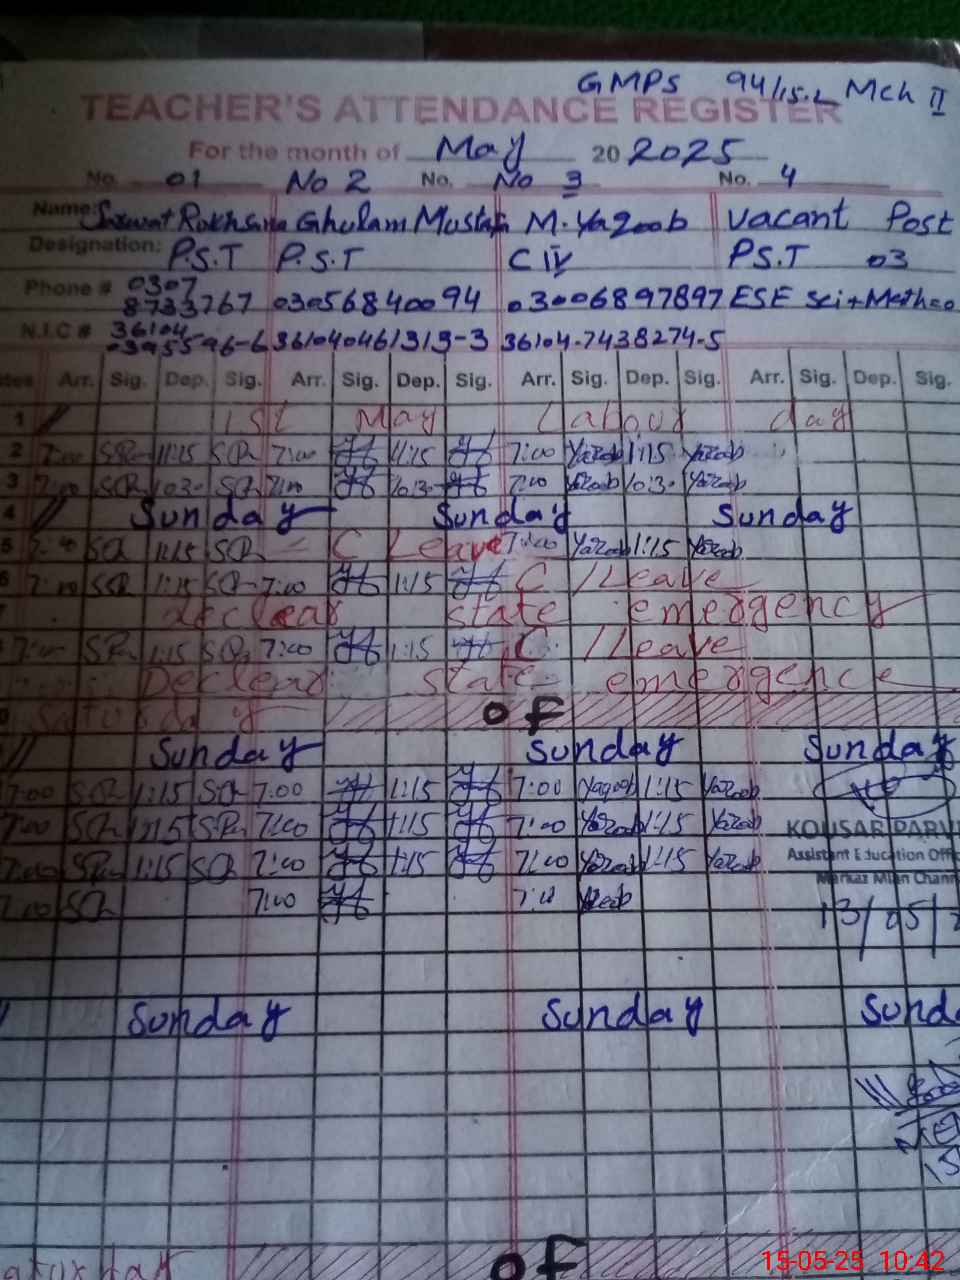 GMPS 94/15.L Mch II
TEACHER'S ATTENDANCE REGISTER
For the month of May 20 2025
No. 01 No 2 No. No 3 No. 4
Name: Sarwat Rukhsana Ghulam Mustafa M. Yaqoob Vacant Post
Designation: P.S.T P.S.T C IV PS.T 03
Phone # 0307
8733767 03056840094 03006897897 ESE Sci+Math
N.I.C # 36104
0395596-6 36104046 1313-3 36104-7438274-5
Arr. Sig. Dep. Sig. Arr. Sig. Dep. Sig. Arr. Sig. Dep. Sig. Arr. Sig. Dep. Sig.
1 1st May Labour day
2 7:00 SR 1:15 SR 7:00 1:15 7:00 Yaqoob 1:15 Yaqoob
3 7:00 SR 1030 SR 7:00 1030 7:00 Yaqoob 1030 Yaqoob
4 Sunday Sunday Sunday
7:00 SR 1:15 SR C Leave 7:00 Yaqoob 1:15 Yaqoob
7:00 SR 1:15 SR 7:00 1:15 C/Leave
declear state emergency
7:00 SR 1:15 SR 7:00 1:15 C/Leave
Declear state emergence
Saturday of
Sunday Sunday Sunday
7:00 SR 1:15 SR 7:00 1:15 7:00 Yaqoob 1:15 Yaqoob
7:00 SR 1:15 SR 7:00 1:15 7:00 Yaqoob 1:15 Yaqoob
KOUSAR PARV
7:00 SR 1:15 SR 7:00 1:15 7:00 Yaqoob 1:15 Yaqoob
Assistant Education Offic
Markaz Mian Chann
7:00 SR 7:00 7:00
13/05/2
Sunday Sunday Sunda
aturday of
15-05-25 10:42